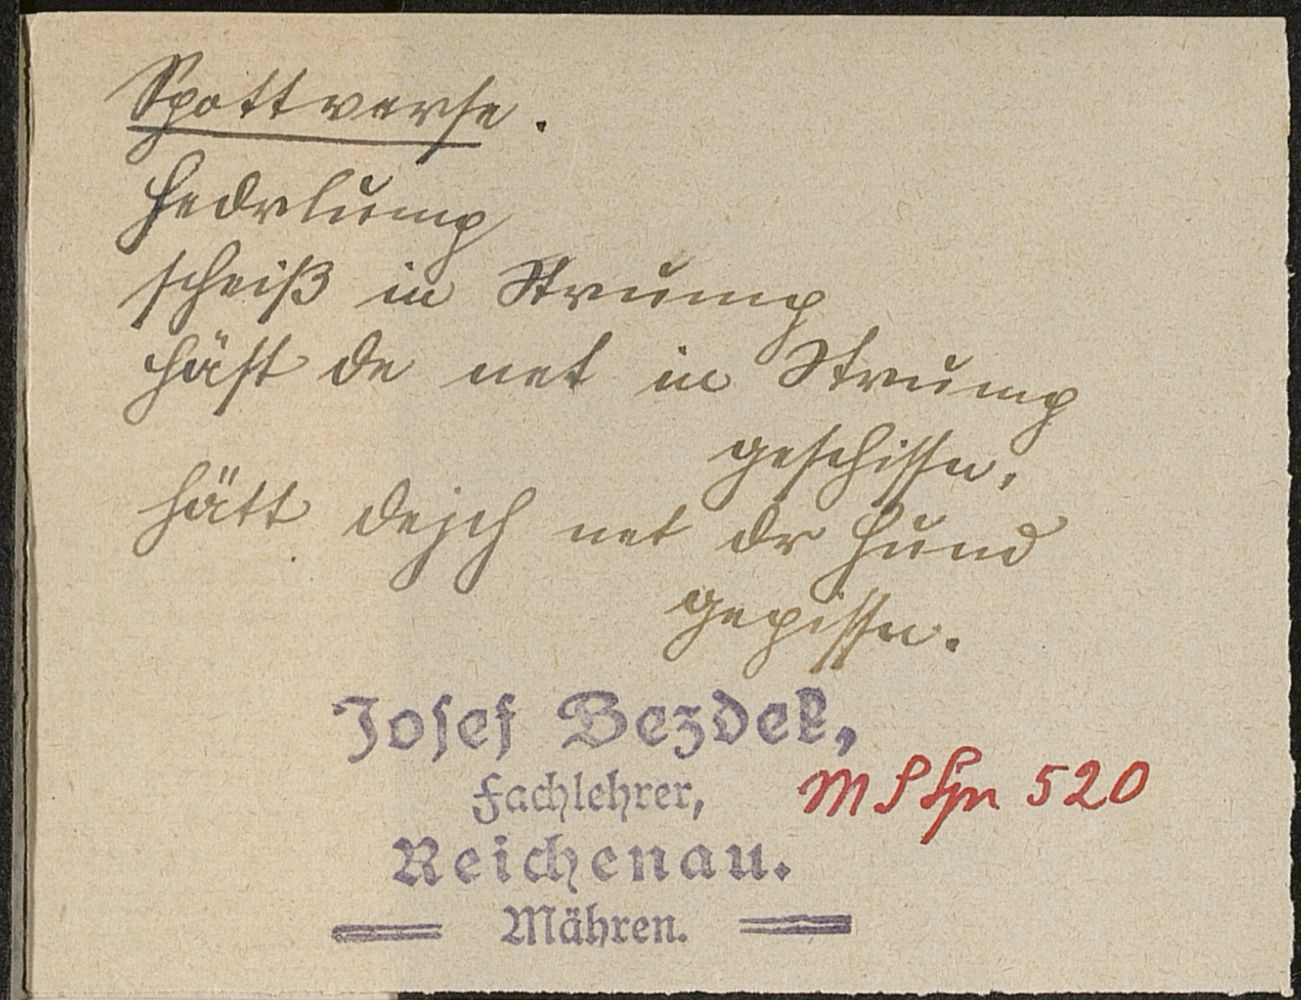 Spottverse.
Hedrlump
scheiß in Strump
häst de net in Strump
geschissn,
hätt dejch net dr Hund
gepissn.
Josef Bezdek,
Fachlehrer,
Reichenau.
Mähren.
520